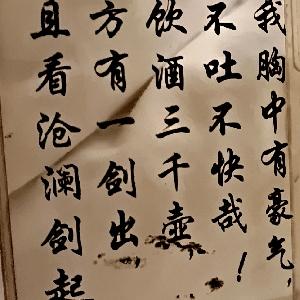 我胸中有豪气，
不吐不快哉！
饮酒三千壶
方有一剑出
且看沧澜剑起